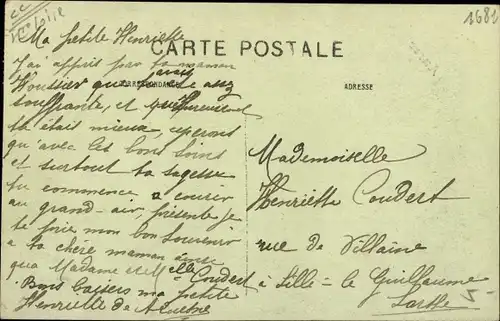 1681
CARTE POSTALE
CORRESPONDANCE
ADRESSE
Ma petite Henriette
J'ai appris par ta maman
souffrante, et
tu était mieux, esperons
qu'avec les bons soins
et surtout ta sagesse
tu commence a courir
au grand-air, présente je
te prie mon bon souvenir
a ta chère maman ainsi
que Madame et Melle Coudert
Bons baisers ma petite
Henriette de
Mademoiselle
Henriette Coudert
rue de Villaine
à Sillé-le Guillaume
Sarthe